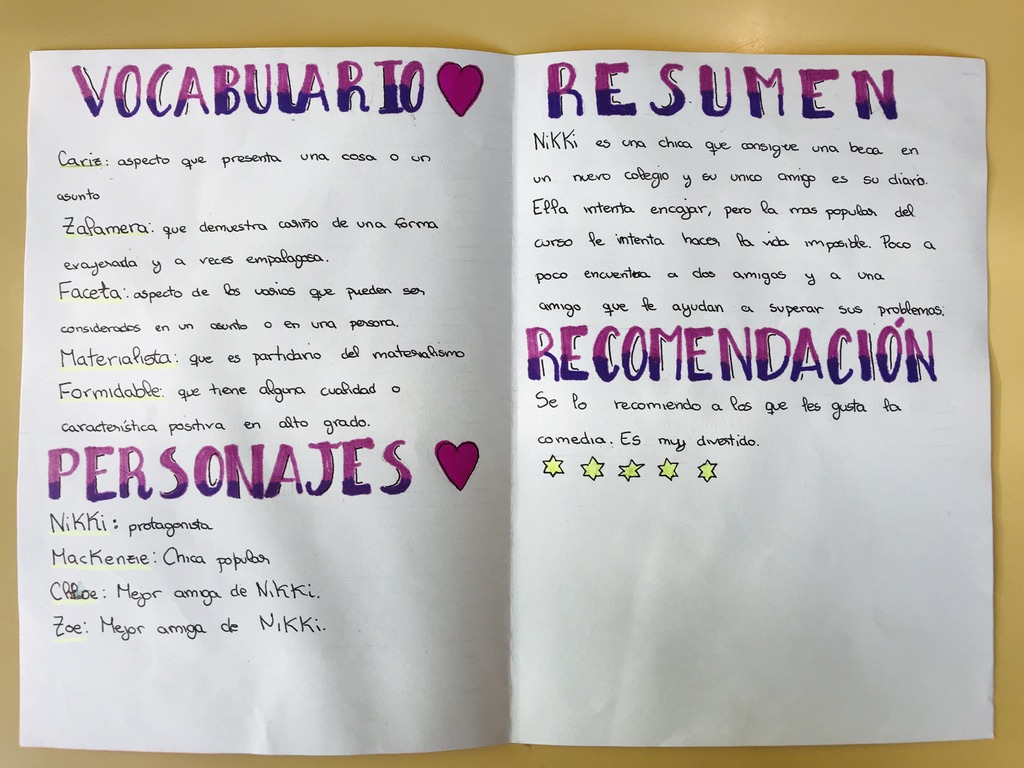 VOCABULARIO
Cariz: aspecto que presenta una cosa o un
asunto
Zalamera: que demuestra cariño de una forma
exagerada y a veces empalagosa.
Faceta: aspecto de los varios que pueden ser
considerados en un asunto o en una persona.
Materialista: que es partidario del materialismo
Formidable: que tiene alguna cualidad o
característica positiva en alto grado.
PERSONAJES
NiKKi: protagonista
MacKenzie: Chica popular
Chloe: Mejor amiga de NiKKi.
Zoe: Mejor amiga de NiKKi.
RESUMEN
NiKKi es una chica que consigue una beca en
un nuevo colegio y su unico amigo es su diario.
Ella intenta encajar, pero la mas popular del
curso le intenta hacer la vida imposible. Poco a
poco encuentra a dos amigas y a una
amigo que le ayudan a superar sus problemas.
RECOMENDACIÓN
Se lo recomiendo a los que les gusta la
comedia. Es muy divertido.